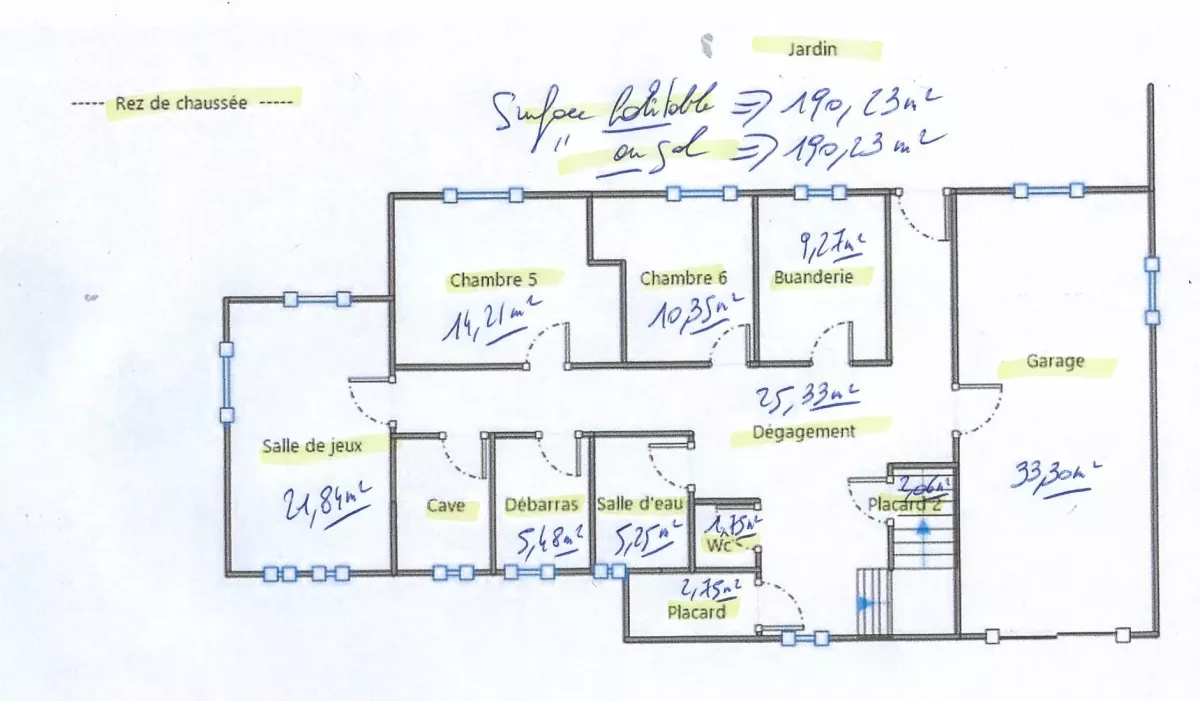 Jardin
----- Rez de chaussée -----
Surface habitable => 190,23 m²
" au sol => 190,23 m²
9,27 m²
Chambre 5
Chambre 6
Buanderie
14,21 m²
10,35 m²
Garage
25,33 m²
Dégagement
Salle de jeux
33,30 m²
21,84 m²
2,06 m²
Cave
Débarras
Salle d'eau
Placard 2
5,48 m²
5,25 m²
1,75 m²
Wc
2,75 m²
Placard